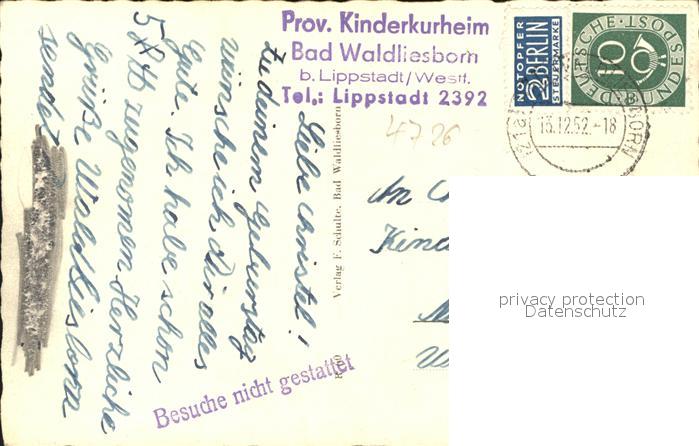 Prov. Kinderkurheim
Bad Waldliesborn
b. Lippstadt/Westf.
Tel.: Lippstadt 2392
NOTOPFER
2 BERLIN
STEUERMARKE
DEUTSCHE BUNDESPOST
10
13.12.52.-18
4726
Liebe Christel!
Zu deinem Geburstag
wünsche ich Dir alles
Gute. Ich habe schon
5 zugenomen Herzliche
Grüße Waldliesborn
sendet
Verlag F. Schulte, Bad Waldliesborn
An
Besuche nicht gestattet
privacy protection
Datenschutz